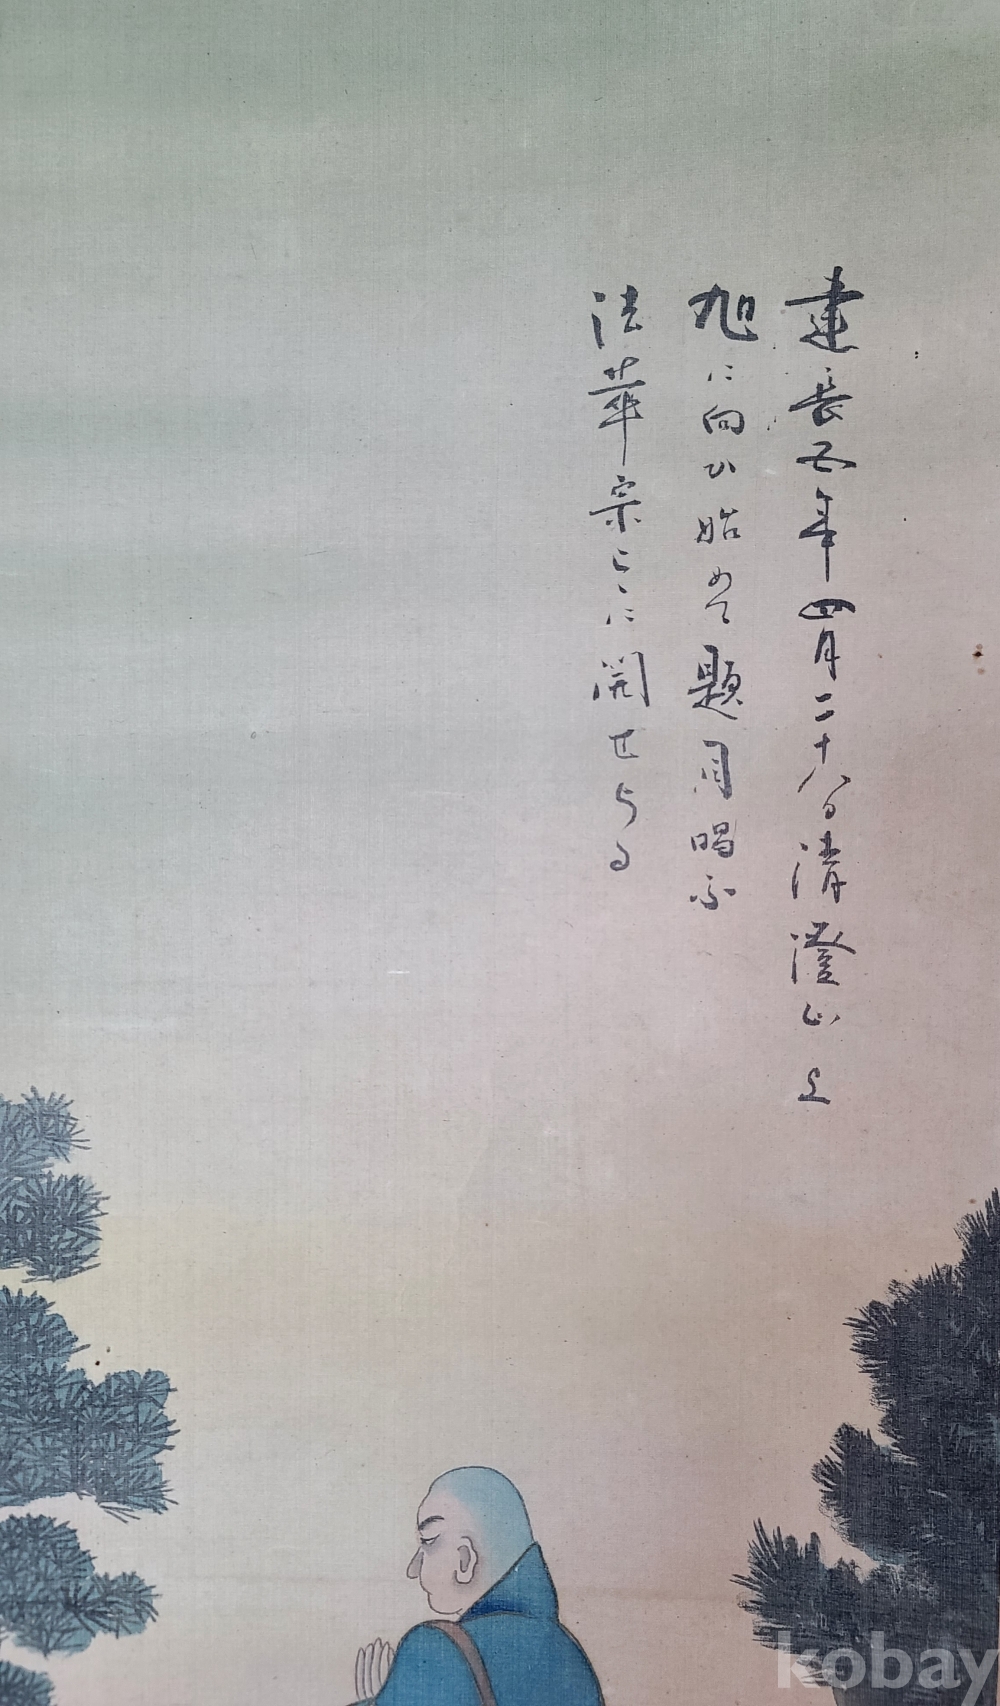 建長五年四月二十八日清澄山上
旭に向ひ始めて題目唱ふ
法華宗こゝに開せらる
kobay